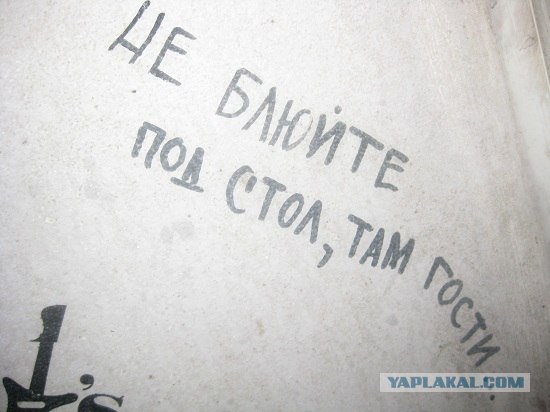 НЕ БЛЮЙТЕ
ПОД СТОЛ, ТАМ ГОСТИ.
's
YAPLAKAL.COM